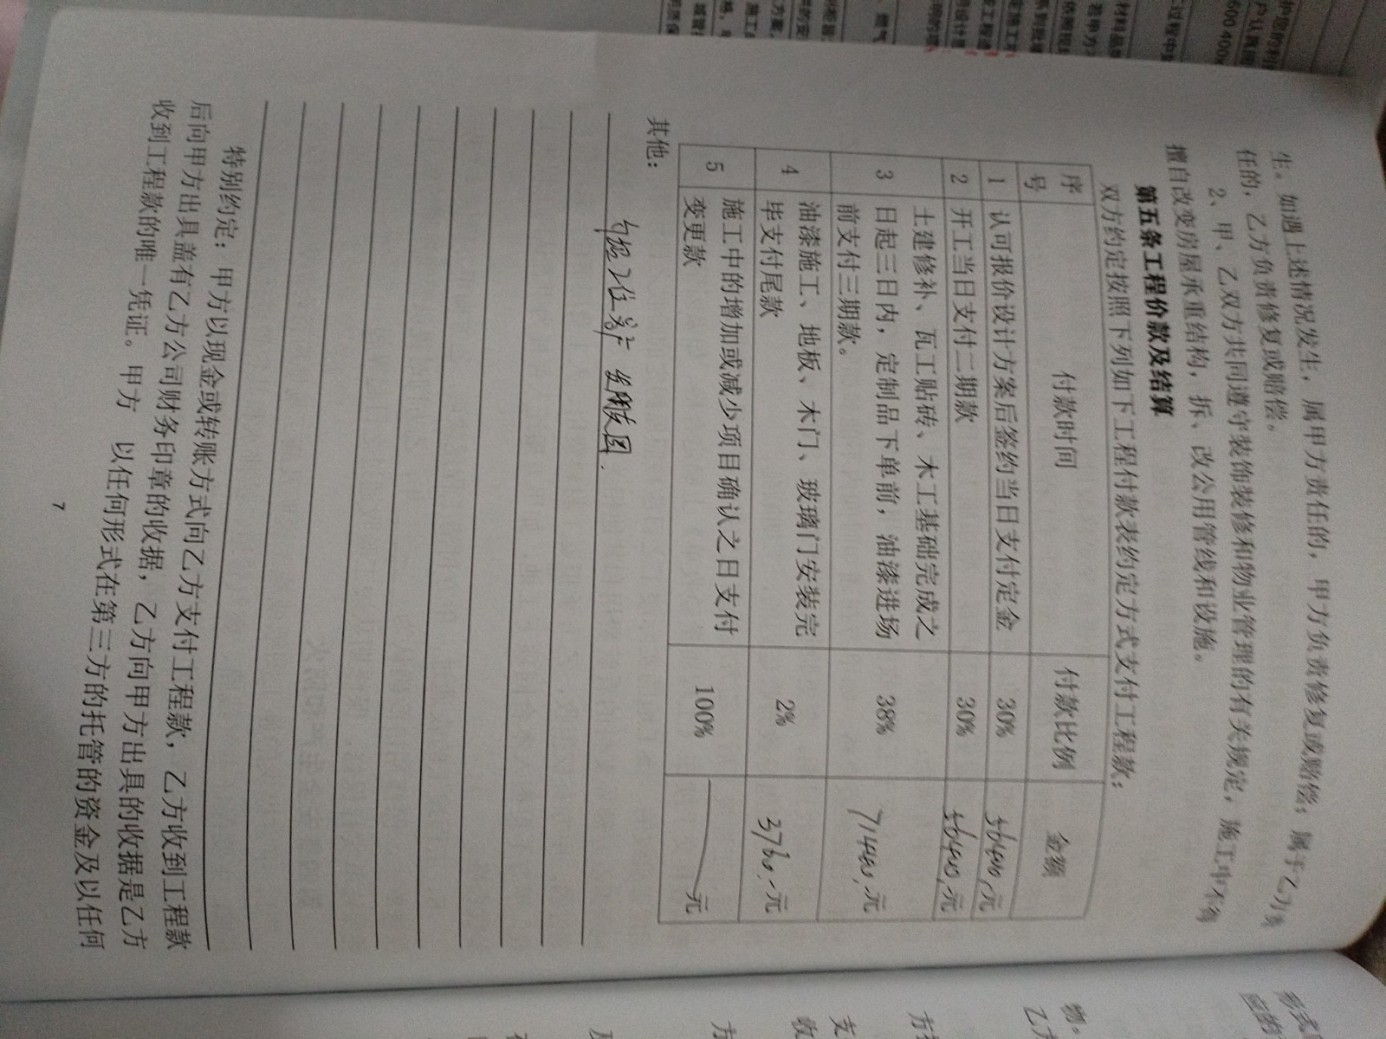 生。如遇上述情况发生，属甲方责任的，甲方负责修复或赔偿；属于乙方责
任的，乙方负责修复或赔偿。
2、甲、乙双方共同遵守装饰装修和物业管理的有关规定，施工中不得
擅自改变房屋承重结构，拆、改公用管线和设施。
第五条工程价款及结算
双方约定按照下列如下工程付款表约定方式支付工程款：
序号 付款时间 付款比例 金额
1 认可报价设计方案后签约当日支付定金 30% 56400.元
2 开工当日支付二期款 30% 56400.元
3 土建修补、瓦工贴砖、木工基础完成之
日起三日内，定制品下单前，油漆进场
前支付三期款。 38% 71440.元
4 油漆施工、地板、木门、玻璃门安装完
毕支付尾款 2% 3760.元
5 施工中的增加或减少项目确认之日支付
变更款 100% 元
其他：
特别约定：甲方以现金或转账方式向乙方支付工程款，乙方收到工程款
后向甲方出具盖有乙方公司财务印章的收据，乙方向甲方出具的收据是乙方
收到工程款的唯一凭证。甲方 以任何形式在第三方的托管的资金及以任何
7